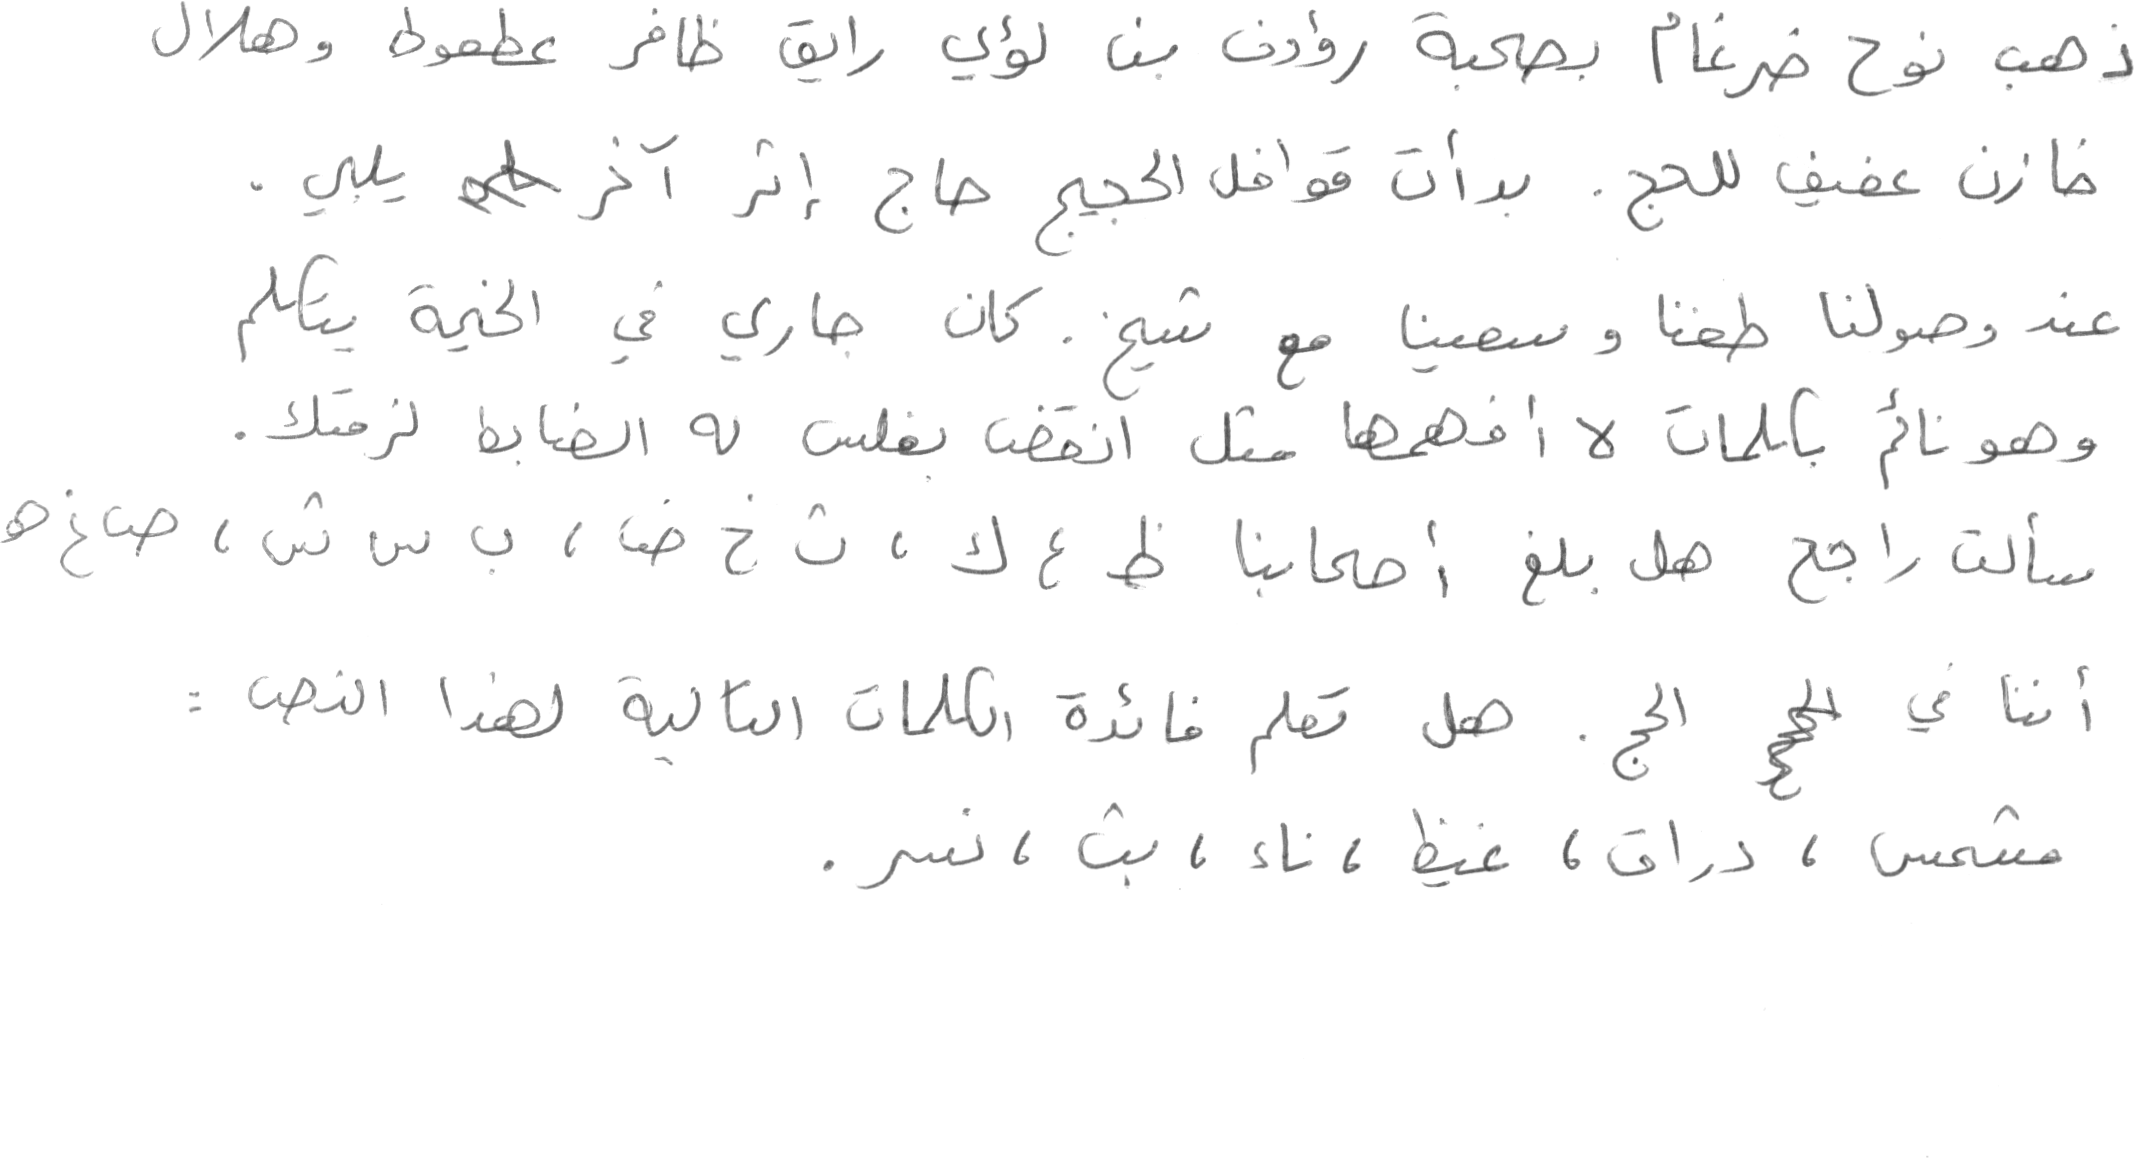 ذهب نوح ضرغام بصحبة رؤوف بن لؤي رايق ظافر عطعوط وهلال
خازن عفيف للحج. بدأت قوافل الحجيج حاج إثر آخر يلبي.
عند وصولنا طفنا وسعينا مع شيخ. كان جاري في الخيمة يتكلم
وهو نائم بكلمات لا أفهمها مثل انقض بغلس له الضابط لزمتك.
سألت راجح هل بلغ أصحابنا ظ ع ك، ث خ ض، ب س ش، ص غ ه
أننا في الحج. هل تعلم فائدة الكلمات التالية لهذا النص:
مشمس، دراق، غيظ، ناء، بث، نسر.